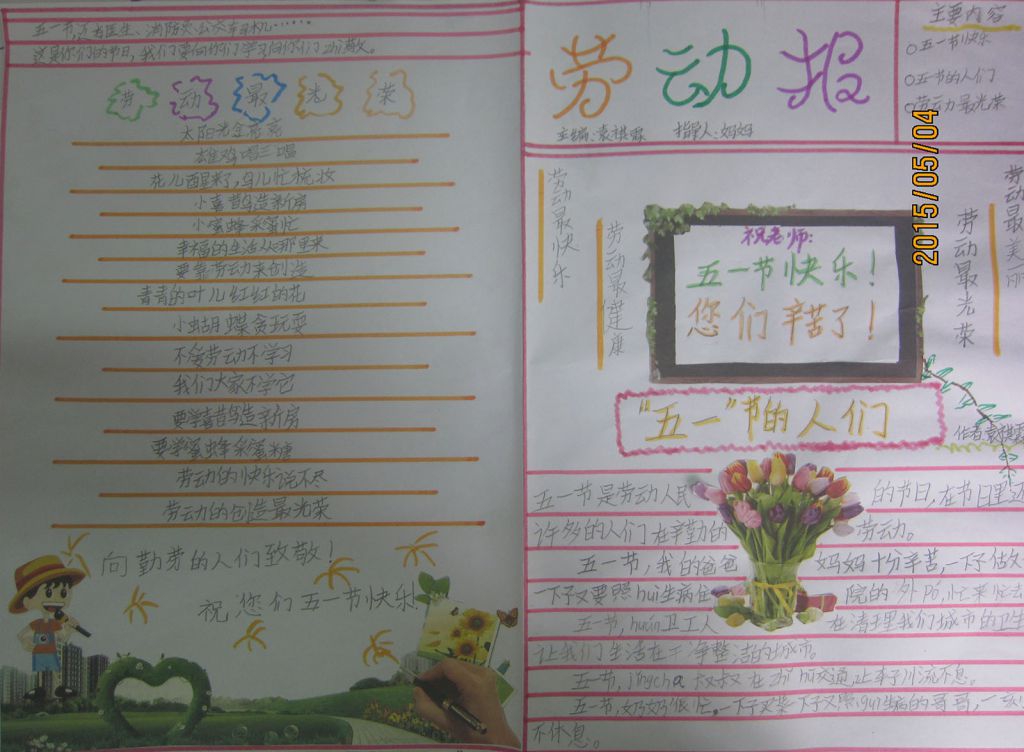 五一节,还有医生、消防员、公交车司机……
这是你们的节日,我们要向你们学习,向你们zhì敬。
劳动最光荣
太阳光金亮亮
雄鸡唱三唱
花儿醒来了,鸟儿忙梳妆
小喜鹊造新房
小蜜蜂采蜜忙
幸福的生活从哪里来
要靠劳动来创造
青青的叶儿红红的花
小蝴蝶贪玩耍
不爱劳动不学习
我们大家不学它
要学喜鹊造新房
要学蜜蜂采蜜糖
劳动的快乐说不尽
劳动的创造最光荣
向勤劳的人们致敬!
祝您们五一节快乐!
劳动报
主编:袁祺霖 指导人:妈妈
主要内容
○五一节快乐
○五一节的人们
○劳动最光荣
2015/05/04
劳动最快乐
劳动最健康
祝老师:
五一节快乐!
您们辛苦了!
劳动最光荣
劳动最美丽
“五一”节的人们
作者:袁祺霖
五一节是劳动人民的节日,在节日里
许多的人们在辛勤的劳动。
五一节,我的爸爸妈妈十分辛苦,一下子做
一下子又要照huì生病住院的外pó,忙来忙去
五一节,huán卫工人在清理我们城市的卫生
让我们生活在干净整洁的城市。
五一节,jǐngchá叔叔在zhǐhuī交通,让车子川流不息。
五一节,奶奶很忙,一下子又菜一下子又照gù生病的哥哥,一刻
不休息。